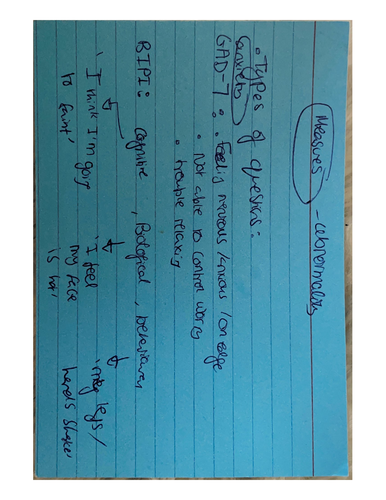 Measures - abnormality
• Types of questions:
(anxiety)
GAD-7 : • Feeling nervous / anxious / on edge
• Not able to control worry
• trouble relaxing
BIPI: Cognitive, Biological, behavioural
'I think I'm going to faint'
'I feel my face is hot'
'my legs / hands shake'